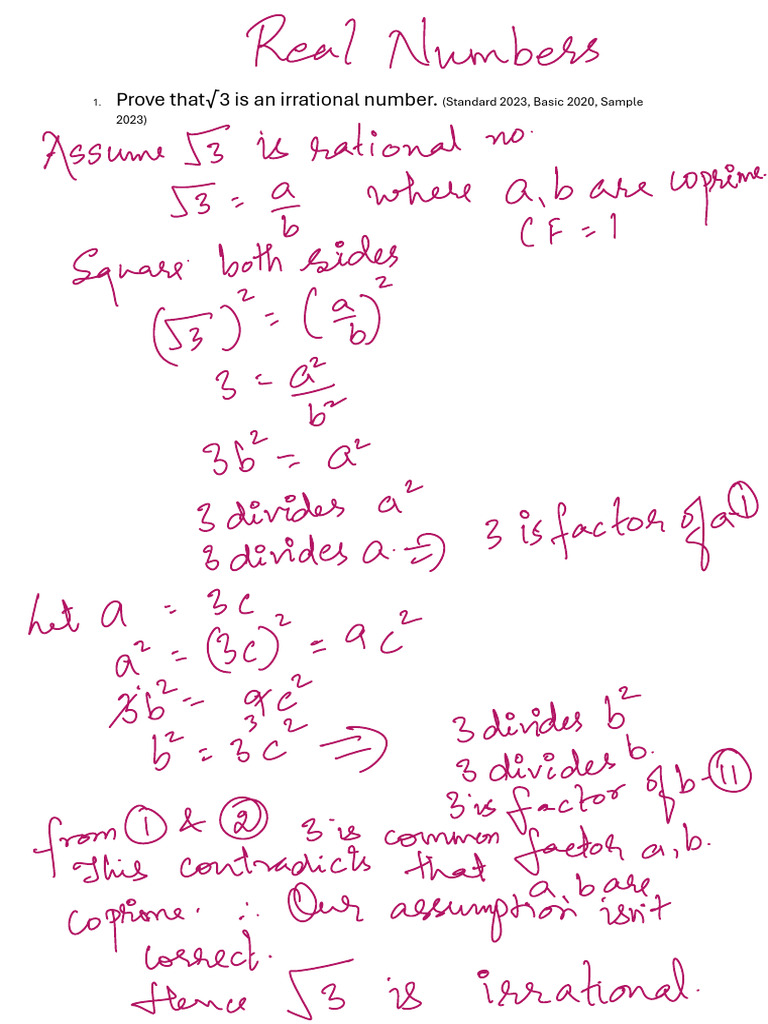 Real Numbers
1. Prove that√3 is an irrational number. (Standard 2023, Basic 2020, Sample
2023)
Assume √3 is rational no.
√3 = a/b where a, b are coprime.
CF = 1
Square both sides
(√3)² = (a/b)²
3 = a²/b²
3b² = a²
3 divides a²
3 divides a. ⇒ 3 is factor of a ①
Let a = 3c
a² = (3c)² = 9c²
3b² = 9c²
3
b² = 3c² ⇒ 3 divides b²
3 divides b.
3 is factor of b - ⑪
from ① & ② 3 is common factor a, b.
This contradicts that a, b are
coprime. ∴ Our assumption isn't
correct.
Hence √3 is irrational.